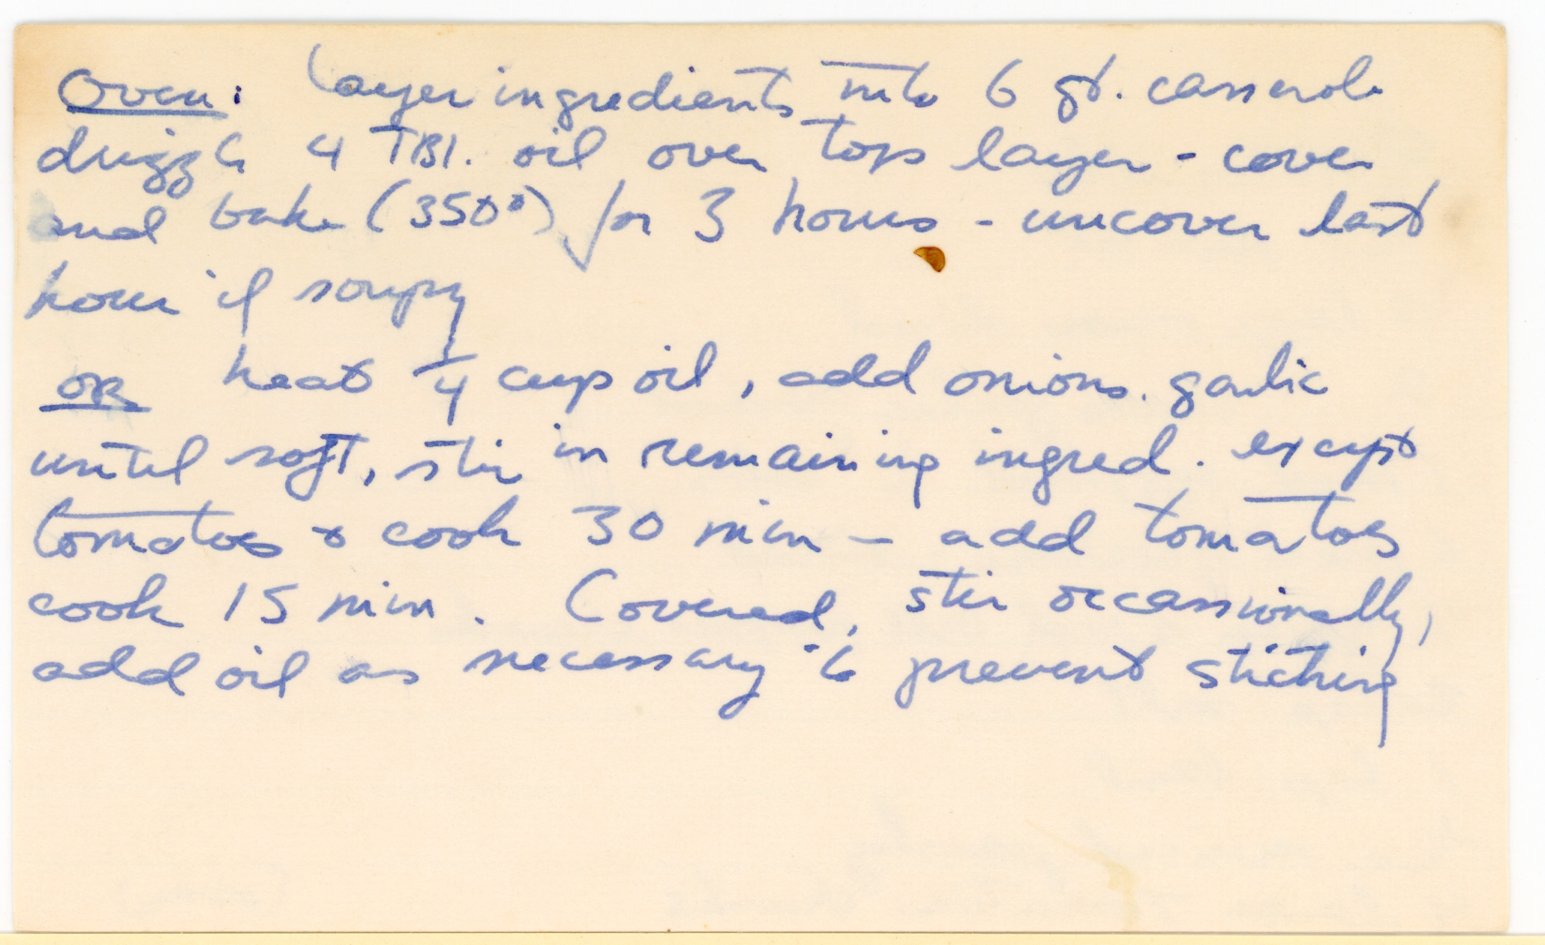 Oven: Layer ingredients into 6 qt. casserole
drizzle 4 TBl. oil over top layer - cover
and bake (350°) for 3 hours - uncover last
hour if soupy
OR heat 1/4 cup oil, add onions. garlic
until soft, stir in remaining ingred. except
tomatoes & cook 30 min - add tomatoes
cook 15 min. Covered, stir occassionally,
add oil as necessary to prevent sticking